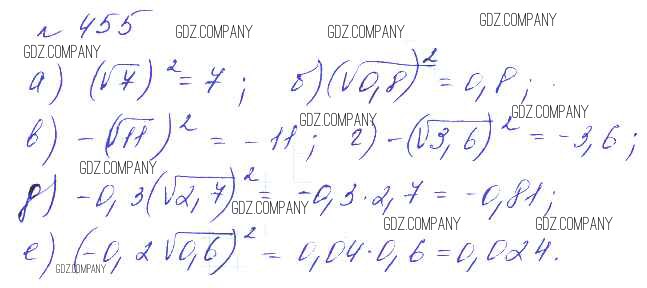 № 455
а) (√7)² = 7; б) (√0,8)² = 0,8;
в) -(√11)² = -11; г) -(√3,6)² = -3,6;
д) -0,3(√2,7)² = -0,3·2,7 = -0,81;
е) (-0,2√0,6)² = 0,04·0,6 = 0,024.
GDZ.COMPANY
GDZ.COMPANY
GDZ.COMPANY
GDZ.COMPANY
GDZ.COMPANY
GDZ.COMPANY
GDZ.COMPANY
GDZ.COMPANY
GDZ.COMPANY
GDZ.COMPANY
GDZ.COMPANY